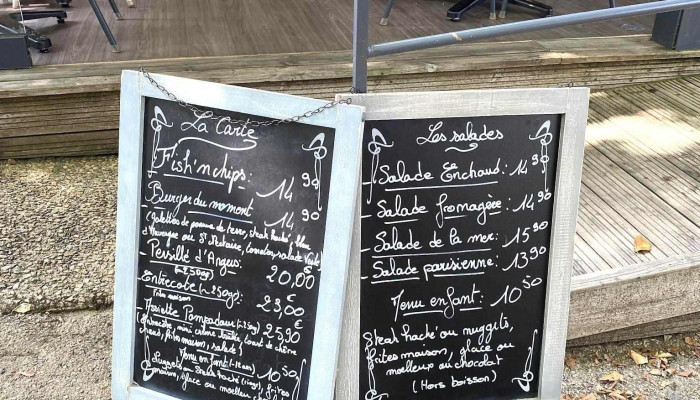 La Carte
Fish'n chips: 14,90
Burger du moment 14,90
(Galettes de pomme de terre, steak haché, bleu
d'Auvergne ou St Nectaire, salade)
Persillé d'Angus
(~250g) 20,00€
Entrecôte (~250g)
frites maison 23,00€
Assiette Pompadour (~250g) 25,90
(Entrecôte,
frites maison, salade)
Menu enfant (-12ans) 10,50
Nuggets ou Steak haché, frites
maison, glace ou moelleux
Les salades
- Salade Enchaud: 14,90
- Salade fromagère: 14,90
- Salade de la mer: 15,90
- Salade parisienne: 13,90
Menu enfant: 10,50
Steak haché ou nuggets,
frites maison, glace ou
moelleux au chocolat
(Hors boisson)